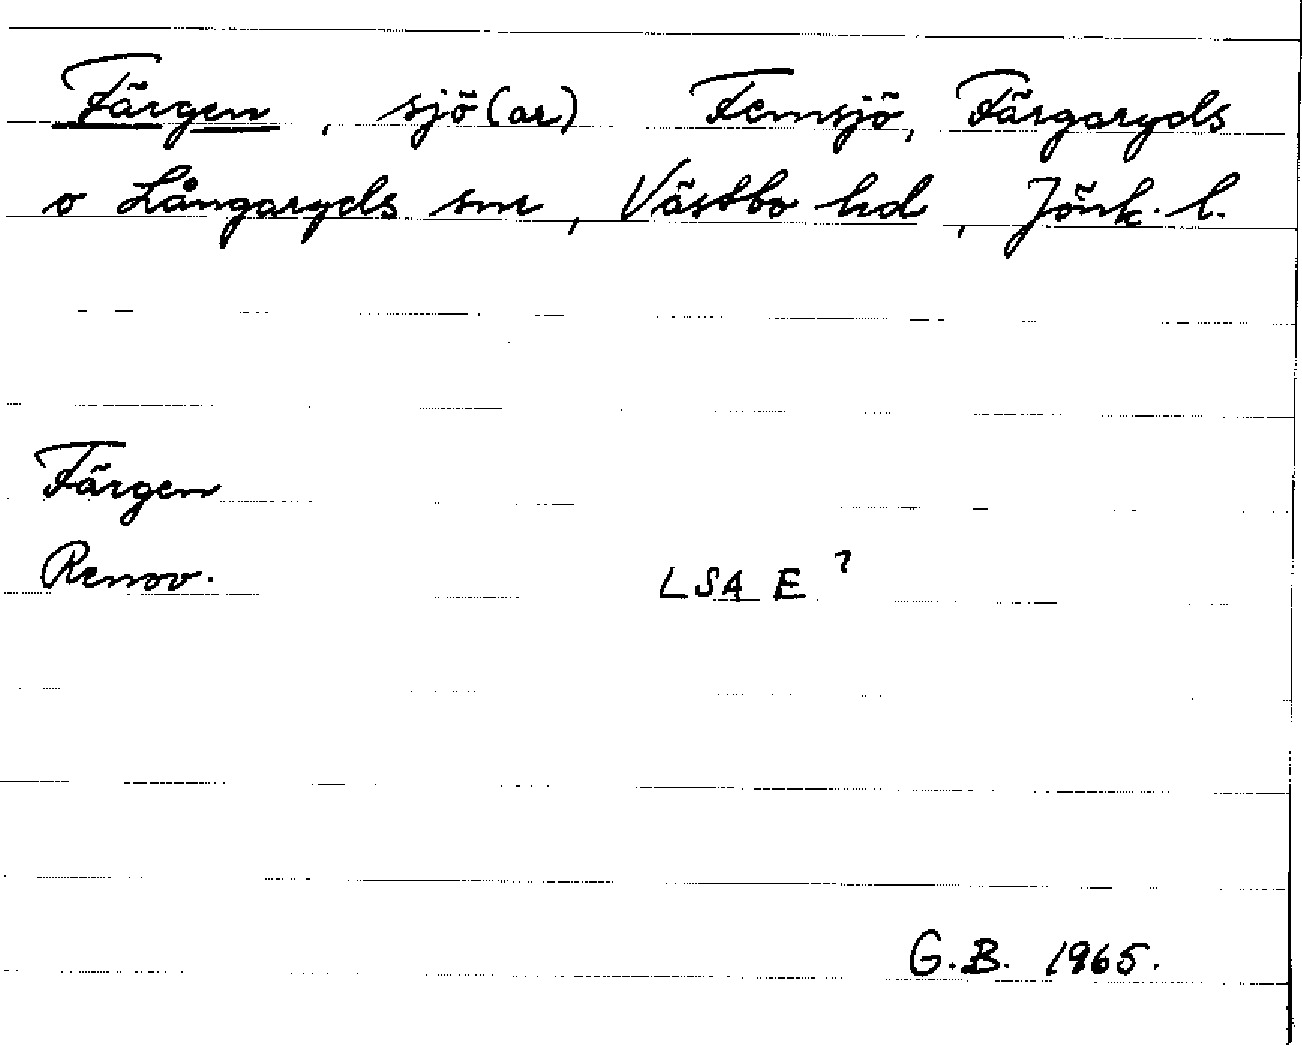 Färgen, sjö(ar) Femsjö, Färgaryds
o Långaryds snr, Västbo hd, Jönk. l.
Färgen
Renov. LSA E ?
G.B. 1965.